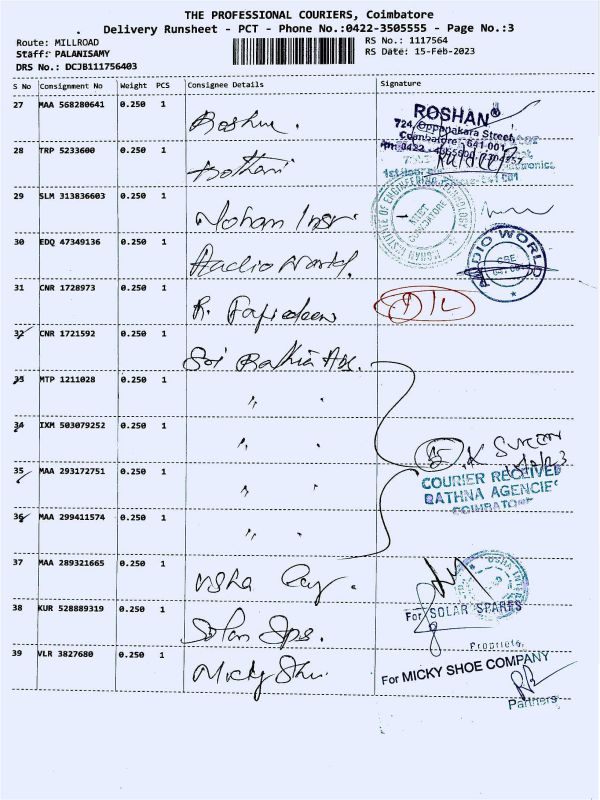 THE PROFESSIONAL COURIERS, Coimbatore
Delivery Runsheet - PCT - Phone No.:0422-3505555 - Page No.:3
Route: MILLROAD
RS No.: 1117564
Staff: PALANISAMY
RS Date: 15-Feb-2023
DRS No.: DCJB111756403
S No Consignment No Weight PCS Consignee Details Signature
27 MAA 568280641 0.250 1 Roshan.
ROSHAN®
724, Oppanakara Street,
Coimbatore - 641 001
28 TRP 5233600 0.250 1
29 SLM 313836603 0.250 1 Mohan Inst
COIMBATORE
30 EDQ 47349136 0.250 1 Audio World.
AUDIO WORLD
CBE
31 CNR 1728973 0.250 1 R.
32 CNR 1721592 0.250 1 Sri Rathna Ags.
33 MTP 1211028 0.250 1 " "
34 IXM 503079252 0.250 1 " "
5 K
35 MAA 293172751 0.250 1 " "
COURIER RECEIVED
RATHNA AGENCIES
COIMBATORE
36 MAA 299411574 0.250 1 " "
37 MAA 289321665 0.250 1 Usha
38 KUR 528889319 0.250 1 Solar Sps.
For SOLAR SPARES
Proprietr.
39 VLR 3827680 0.250 1 Micky Shu.
For MICKY SHOE COMPANY
Partners